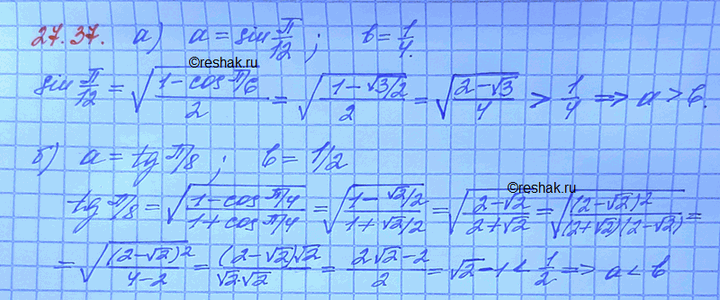 27.37. а) a = sin π/12 ; b = 1/4.
©reshak.ru
sin π/12 = √((1-cos π/6)/2) = √((1-√3/2)/2) = √((2-√3)/4) > 1/4 ⇒ a > b.
б) a = tg π/8 ; b = 1/2
©reshak.ru
tg π/8 = √((1-cos π/4)/(1+cos π/4)) = √((1-√2/2)/(1+√2/2)) = √((2-√2)/(2+√2)) = √((2-√2)²/((2+√2)(2-√2))) =
= √((2-√2)²/(4-2)) = ((2-√2)√2)/(√2·√2) = (2√2-2)/2 = √2-1 < 1/2 ⇒ a < b
©reshak.ru